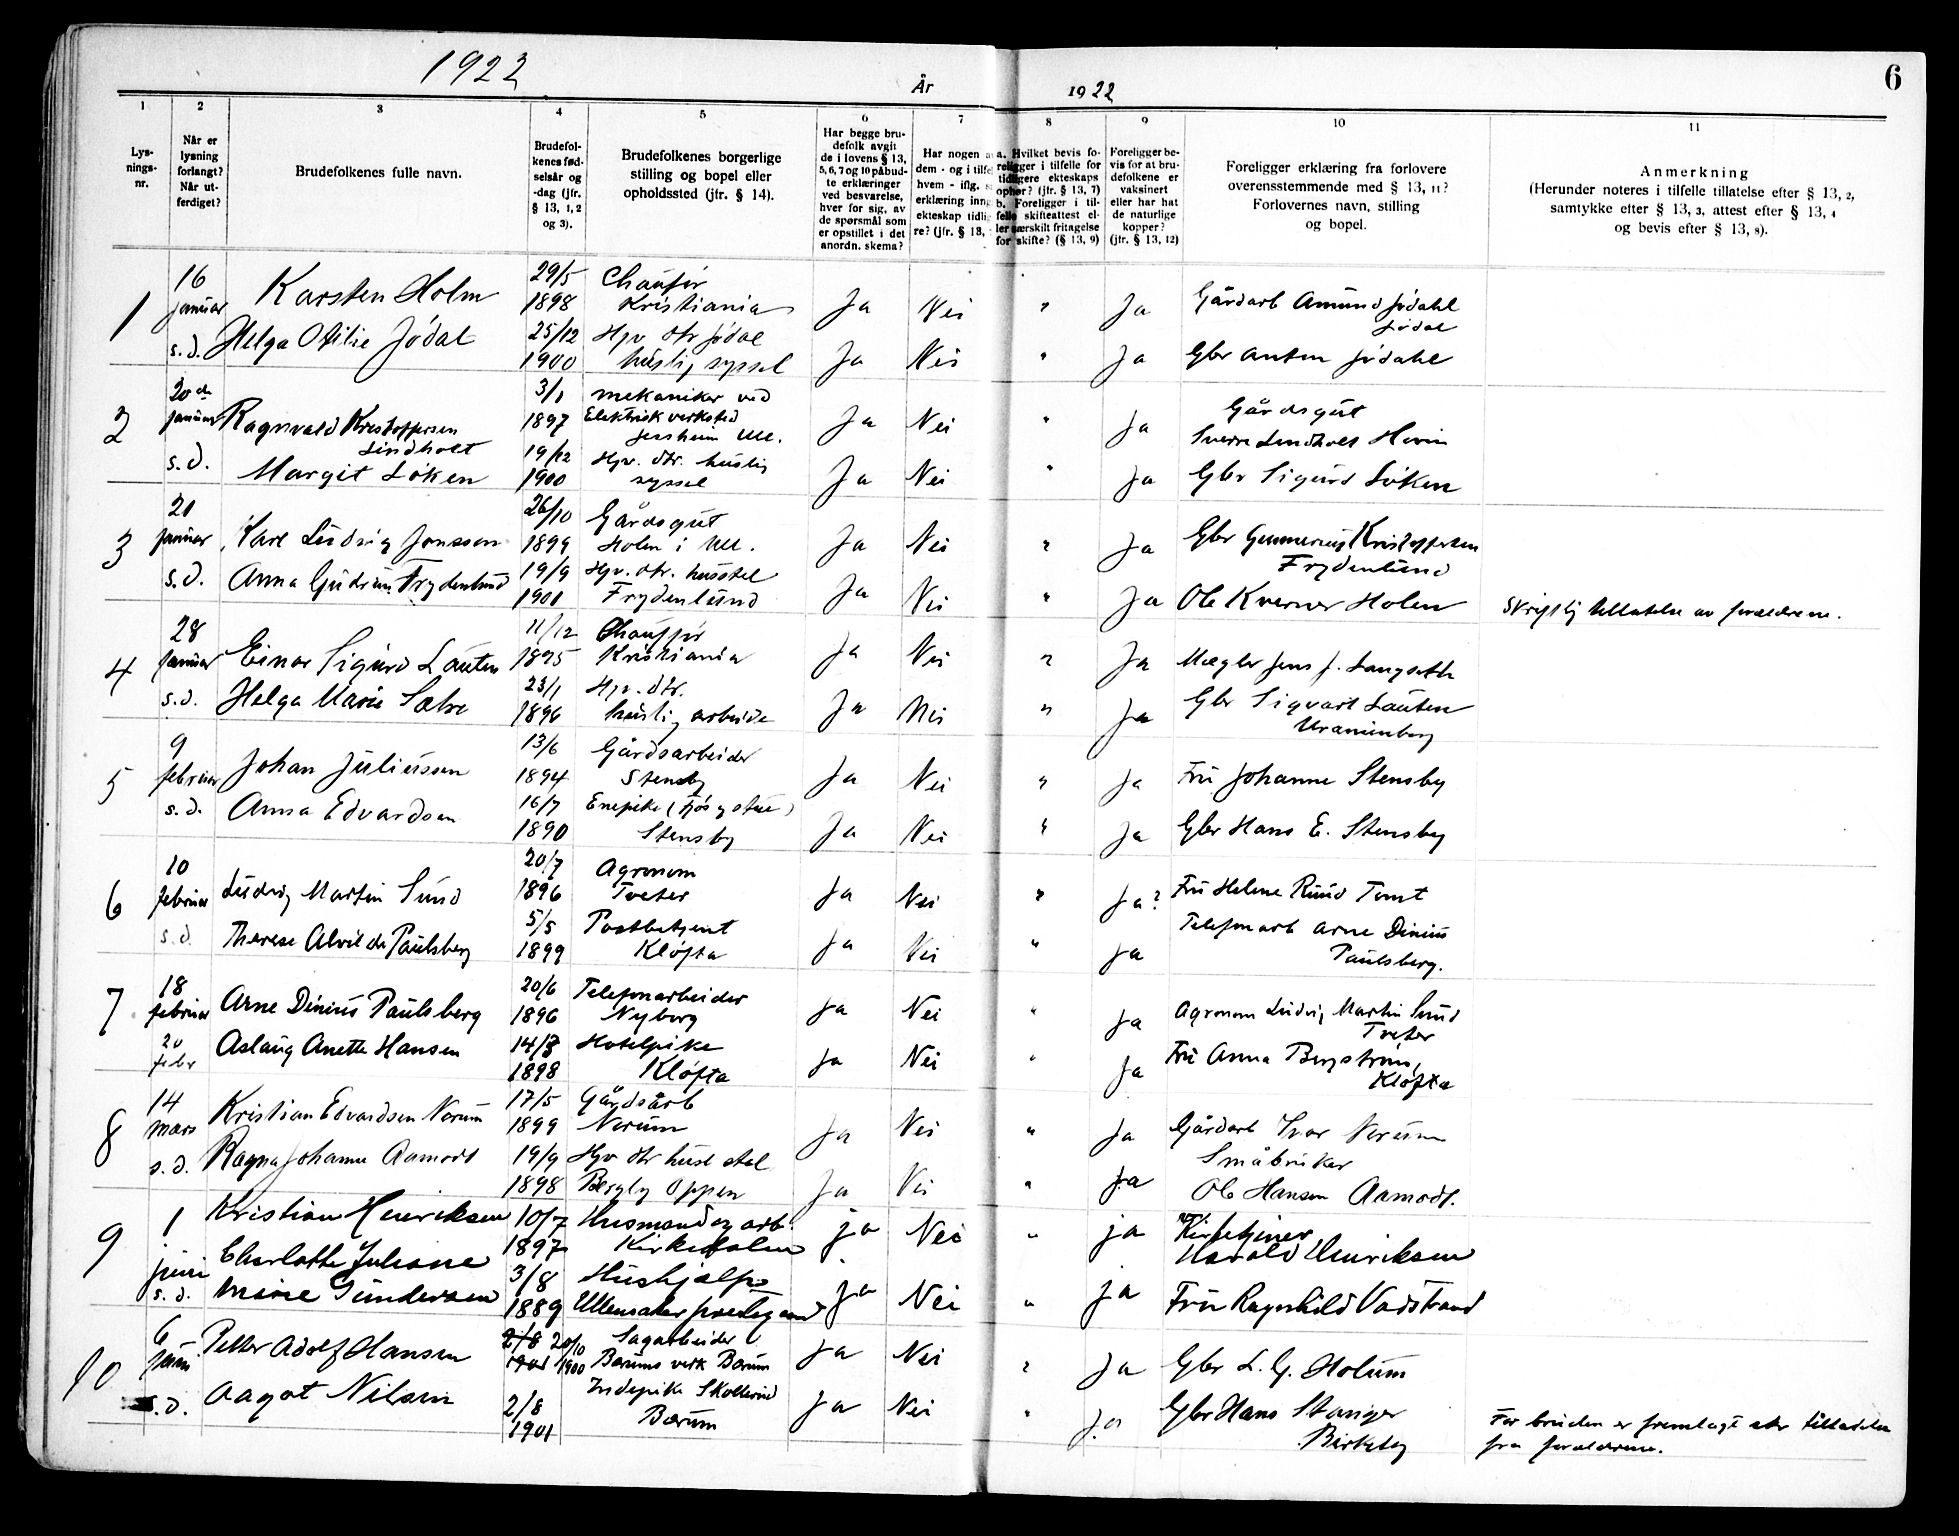 1922
År
1922
6
1
2
3
4
5
6
7
8
9
10
11
Lys-
nings-
nr.
Når er
lysning
forlangt?
Når ut-
ferdiget?
Brudefolkenes fulle navn.
Brudefol-
kenes fød-
selsår og
-dag (jfr.
§ 13, 1, 2
og 3).
Brudefolkenes borgerlige
stilling og bopel eller
opholdssted (jfr. § 14).
Har begge bru-
defolk avgit
de i lovens § 13,
5, 6, 7 og 10 påbud-
te erklæringer
ved besvarelse,
hver for sig, av
de spørsmål som
er opstillet i det
anordn. skema?
Har nogen
dem - og i tilfe
hvem - iflg.
erklæring inng
ekteskap tidlig
re? (jfr. § 13,
a. Hvilket bevis fo-
religger i tilfelle for
tidligere ekteskaps
ophør? (jfr. § 13, 7)
b. Foreligger i til-
felle skifteattest el-
ler særskilt fritagelse
for skifte? (§ 13, 9)
Foreligger be-
vis for at bru-
defolkene er
vaksinert
eller har hat
de naturlige
kopper?
(jfr. § 13, 12)
Foreligger erklæring fra forlovere
overensstemmende med § 13, 11?
Forlovernes navn, stilling
og bopel.
Anmerkning
(Herunder noteres i tilfelle tillatelse efter § 13, 2,
samtykke efter § 13, 3, attest efter § 13, 4
og bevis efter § 13, 8).
1
16 januar Karsten Holm 29/5 1898 Chauför Kristiania Ja Nei " Ja Gårdarb Amund Jödahl Jödal
s.d. Helga Otilie Jödal 25/12 1900 Hjv dtr Jödal huslig syssel Ja Nei " Ja Gbr Anton Jödahl
2
20de januar Ragnvald Kristoffersen Lindholt 3/1 1897 mekaniker ved Elektrisk verksted Jessheim Ull. Ja Nei " Ja Gårdsgut Sverre Lindholt Hovin
s.d. Margit Löken 19/12 1900 Hjv. dtr. huslig syssel Ja Nei " Ja Gbr Sigurd Löken
3
21 januar Karl Ludvig Jonsson 26/10 1899 Gårdsgut Holm i Ull. Ja Nei " Ja Gbr Gunnerius Kristoffersen Frydenlund
s.d. Anna Gudrun Frydenlund 19/9 1901 Hjv. dtr. husstel Frydenlund Ja Nei " Ja Ole Kverner Holen Skriftlig tillatelse av foreldrene.
4
28 januar Einar Sigurd Lauten 11/12 1895 Chauffør Kristiania Ja Nei " Ja Mægler Jens J. Langseth
s.d. Helga Marie Sætre 23/1 1896 Hjv. dtr. huslig arbeide Ja Nei " Ja Gbr Sigvart Lauten Uranienborg
5
9 februar Johan Juliussen 13/6 1894 Gårdsarbeider Stensby Ja Nei " Ja Fru Johanne Stensby
s.d. Anna Edvardsen 16/7 1890 Enepike (fjös og stue) Stensby Ja Nei " Ja Gbr Hans E. Stensby
6
10 februar Ludvig Martin Sund 20/7 1896 Agronom Tveter Ja Nei " Ja? Fru Helene Ruud Tomt
s.d. Therese Alvilde Paulsberg 5/5 1899 Postbetjent Kløfta Ja Nei " Ja Telefonarb Arne Dinius Paulsberg.
7
18 februar Arne Dinius Paulsberg 20/6 1896 Telefonarbeider Nyborg Ja Nei " Ja Agronom Ludvig Martin Sund Tveter
20 febr Aslaug Anette Hansen 14/8 1898 Hotelpike Kløfta Ja Nei " Ja Fru Anna Bergström, Kløfta
8
14 mars Kristian Edvardsen Norum 17/5 1899 Gårdsarb Norum Ja Nei " Ja Gårdarb Ivar Norum
s.d. Ragna Johanne Aamodt 19/9 1898 Hjv dtr husstel Bergly Oppen Ja Nei " Ja Småbruker Ole Hansen Aamodt.
9
1 juni Kristian Henriksen 10/7 1897 Husmand og arb. Kirkeholen ja Nei " ja Kirketjener Harald Henriksen
s.d. Charlotte Juliane Marie Gundersen 3/8 1889 Hushjælp Ullensaker prestegaard ja Nei " ja Fru Ragnhild Vadstrand
10
6 juni Petter Adolf Hansen 2/8 1901 20/10 1900 Sagarbeider Bærums verk Bærum Ja Nei " Ja Gbr L. G. Holum
s.d. Aagot Nilsen 2/8 1901 Indepike Bærum Ja Nei " ja Gbr Hans Stanger Birkeby For bruden er fremlagt tilladelse
fra forældrene.